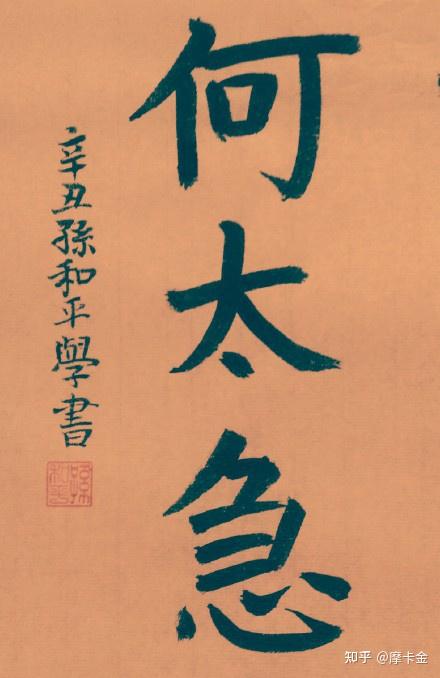 何太急
辛丑孫和平學書
知乎 @摩卡金